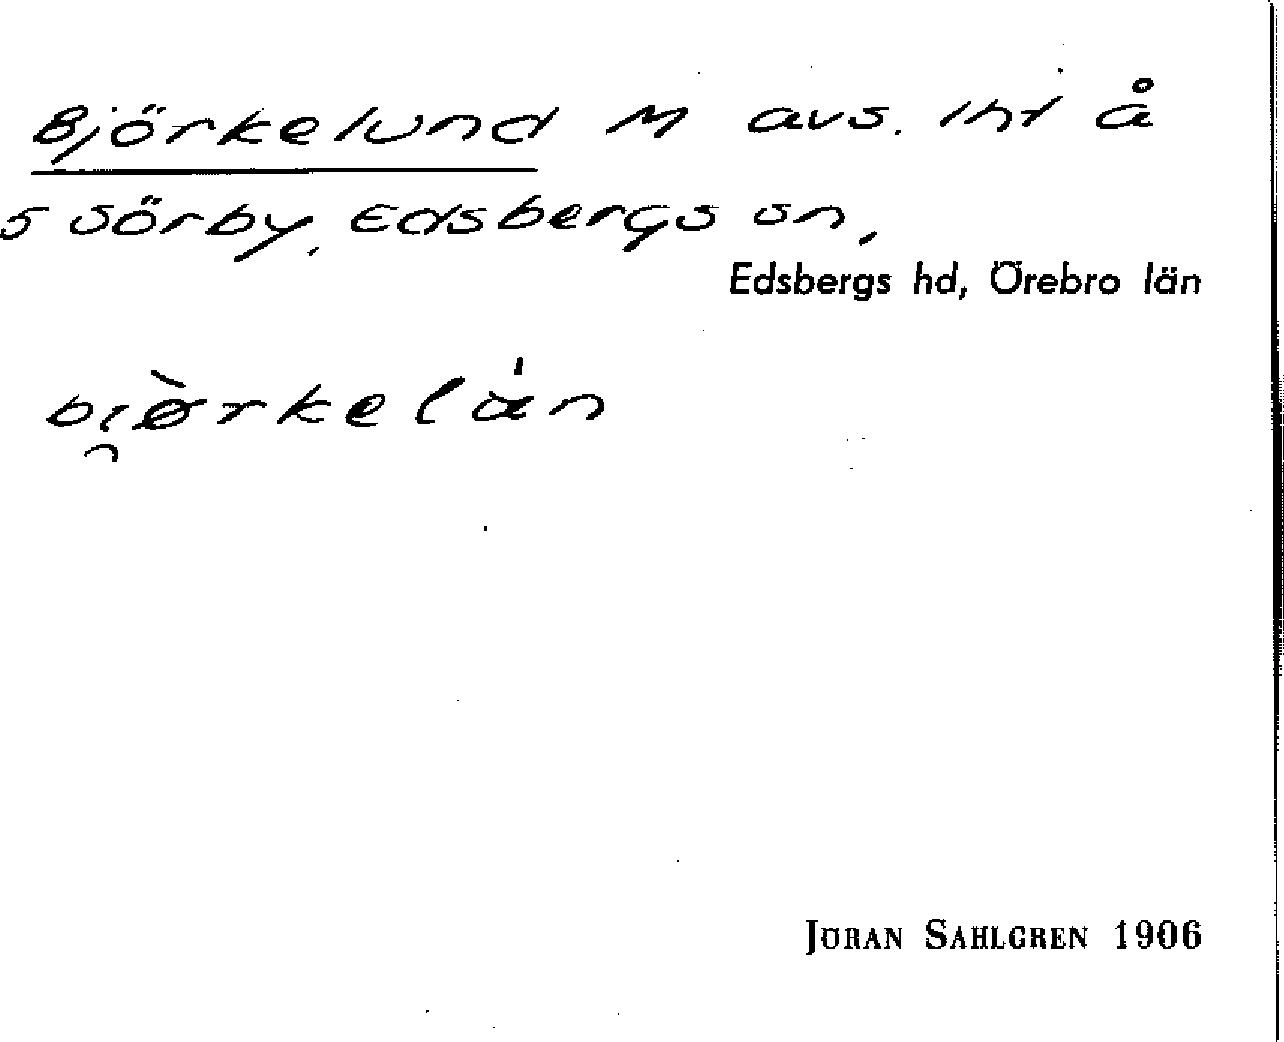 Björkelund M avs. lht å
S Sörby, Edsbergs sn,
Edsbergs hd, Örebro län
bi̯ø̀rkelán
JÖRAN SAHLGREN 1906